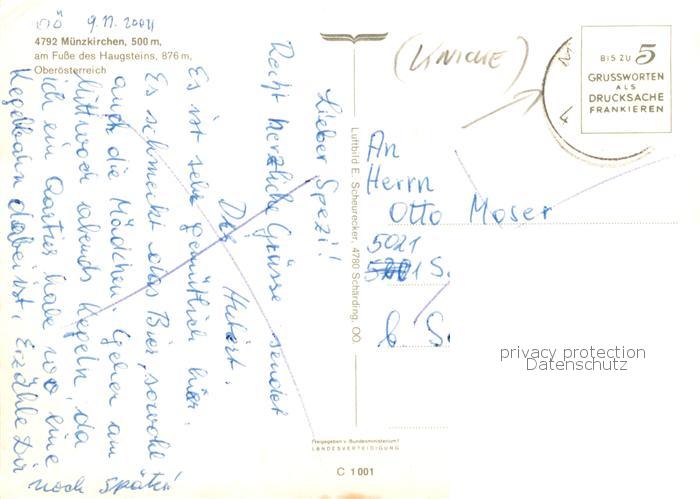 OÖ 9.11.2004
4792 Münzkirchen, 500 m,
am Fuße des Haugsteins, 876 m,
Oberösterreich
Lieber Spezi!
Recht herzliche Grüsse sendet
Dir Hubert.
Es ist sehr gemütlich hier.
Es schmeckt das Bier, sowohl
auch die Mädchen. Gehen am
Mittwoch abends Kegeln, da
ich ein Quartier habe wo eine
Kegelbahn dabei ist. Erzähle Dir
noch später!
Luftbild E. Scheurecker, 4780 Schärding, OÖ.
Freigegeben v. Bundesministerium f.
LANDESVERTEIDIGUNG
C 1001
(UNICHE)
BIS ZU 5
GRUSSWORTEN
ALS
DRUCKSACHE
FRANKIEREN
An
Herrn
Otto Moser
5021
S.
S.
privacy protection
Datenschutz